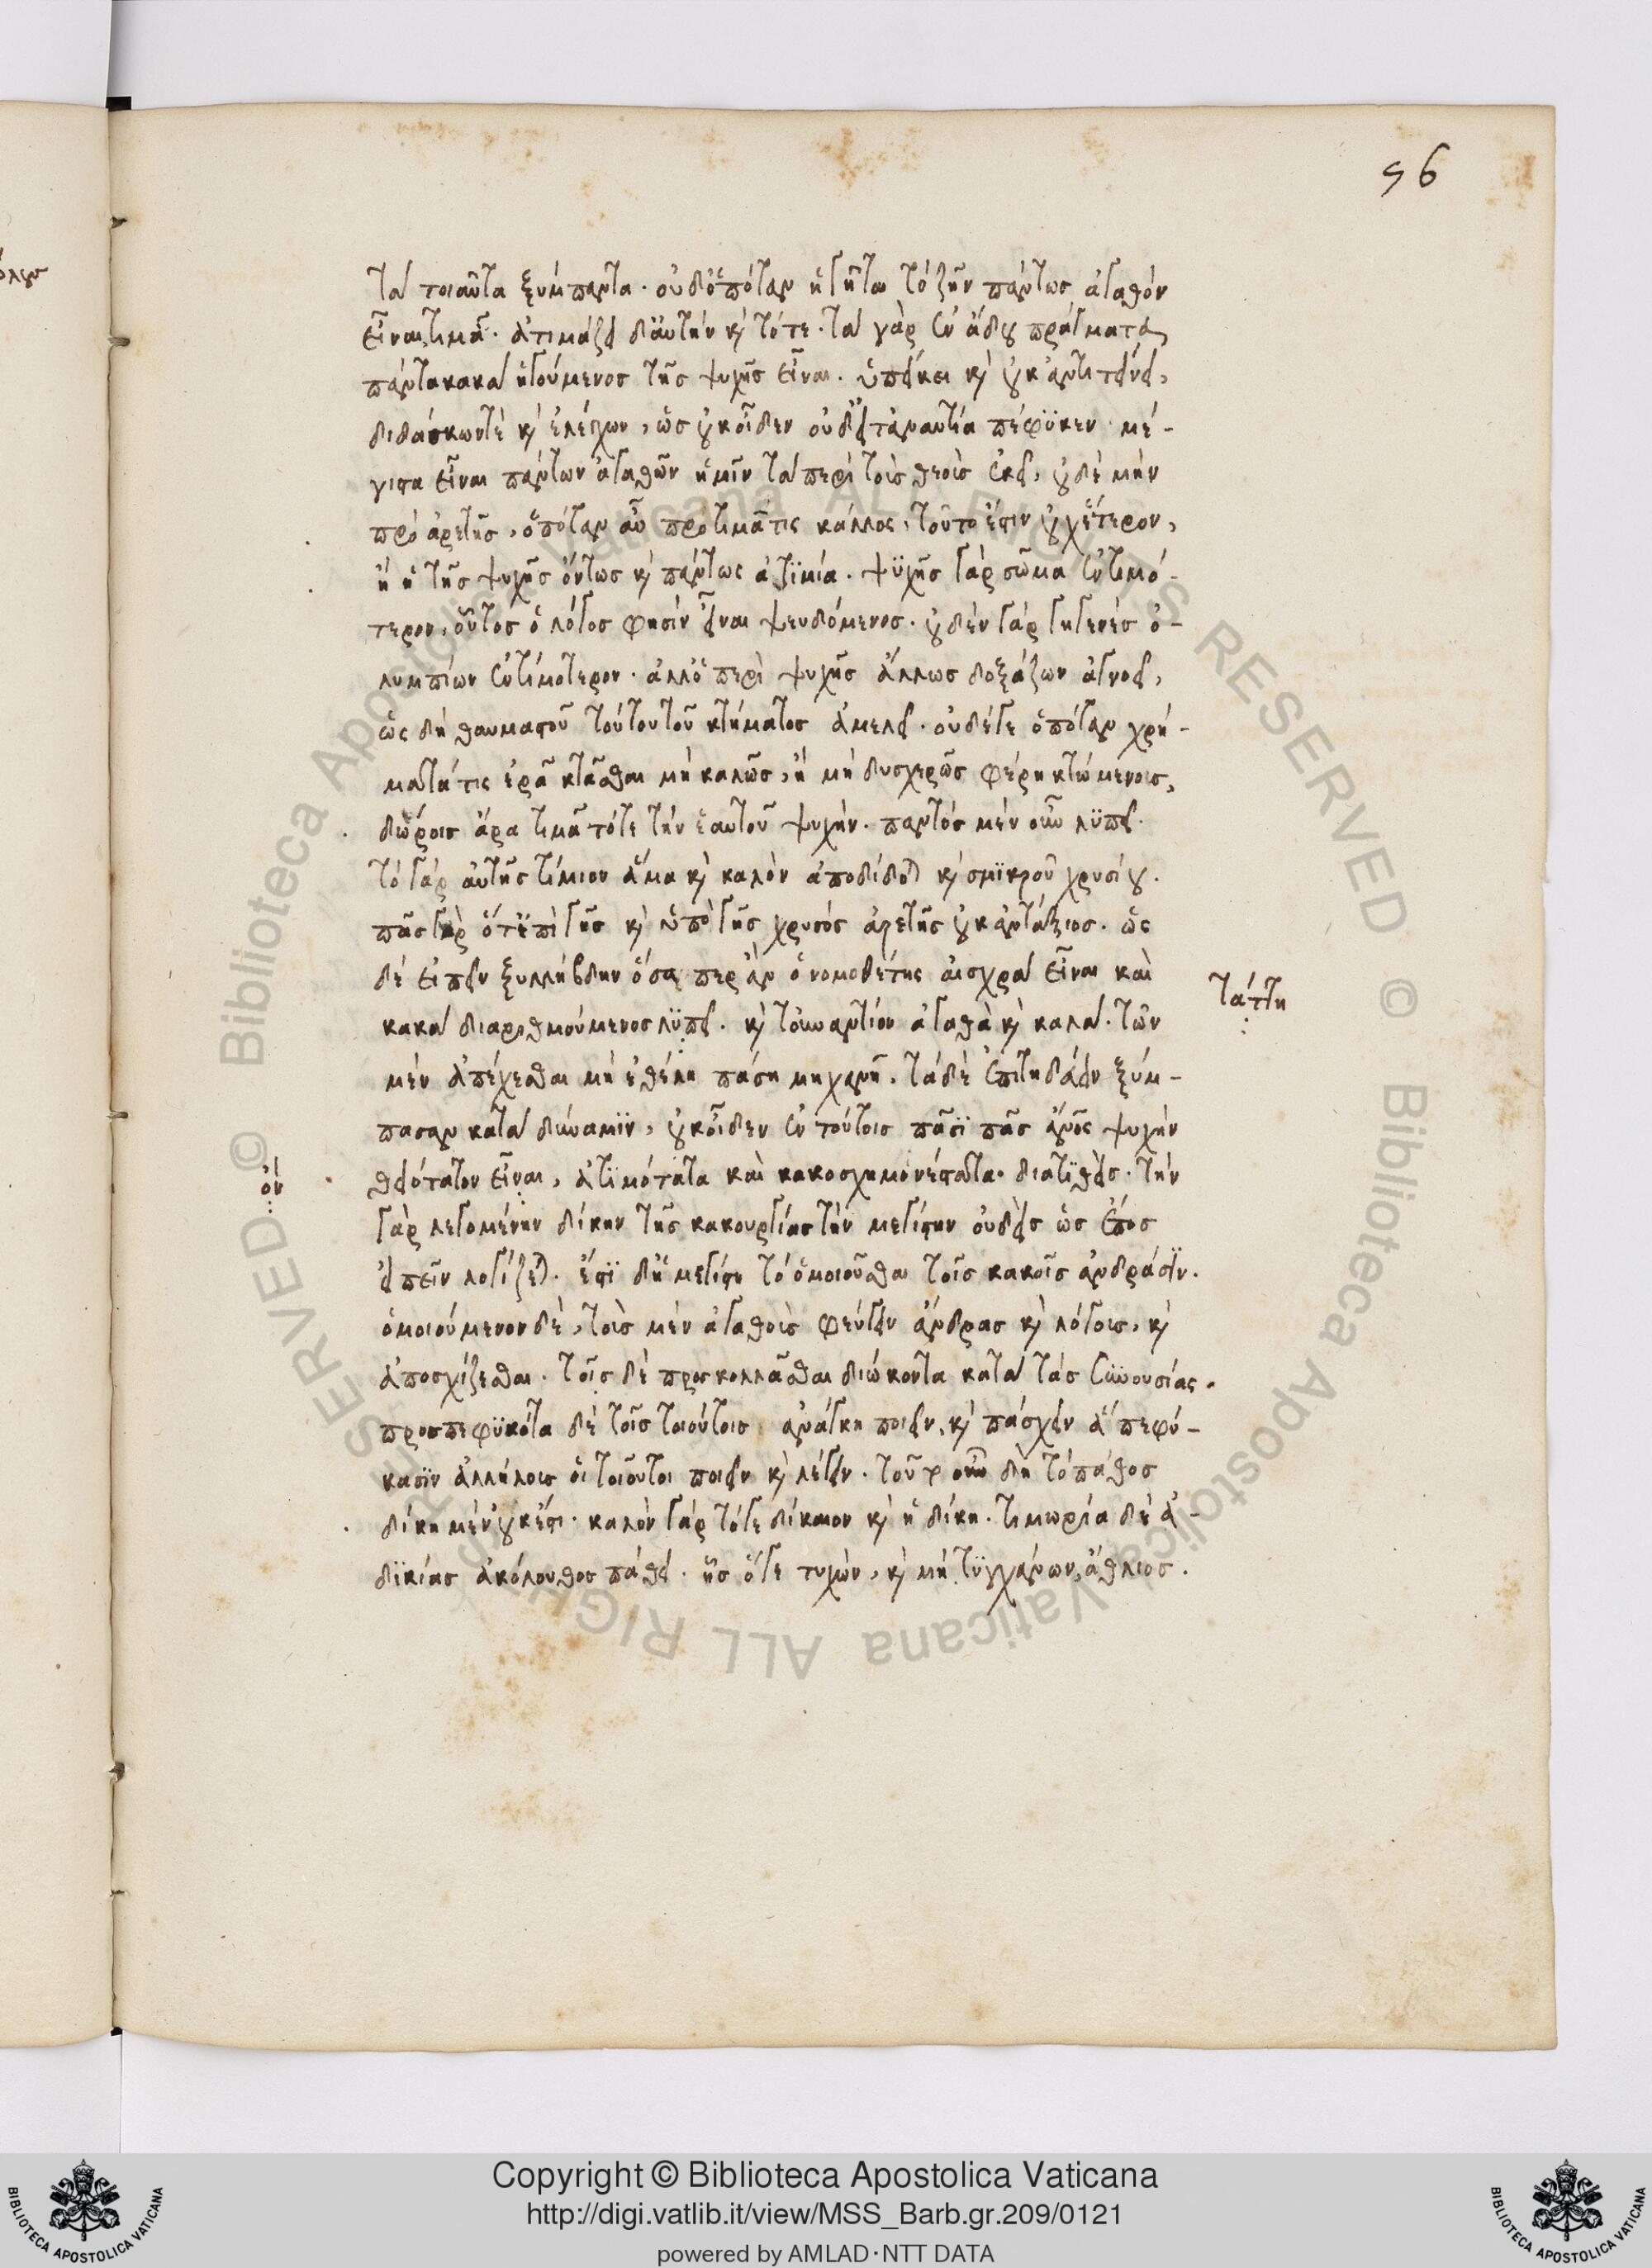 56
τὰ τοιαῦτα ξύμπαντα. οὐδ' ὁπόταν ἡγῆται τὸ ζῆν πάντως ἀγαθὸν
εἶναι, τιμᾷ. ἀτιμάζει δ' αὐτὴν καὶ τότε. τὰ γὰρ ἐν ἅδου πράγματα
πάντα κακὰ ἡγούμενος τῆς ψυχῆς εἶναι. ὑπείκει καὶ οὐκ ἀντιτείνει,
διδάσκων τὲ καὶ ἐλέγχων, ὡς οὐκ οἶδεν οὐδ' εἰ τἀναντία πέφυκεν μέ-
γιστα εἶναι πάντων ἀγαθῶν ἡμῖν τὰ περὶ τοὺς θεοὺς ἐκεῖ, οὐδὲ μὴν
πρὸ ἀρετῆς, ὁπόταν αὖ προτιμᾷ τις κάλλος, τοῦτο ἔστιν οὐχ ἕτερον,
ἢ ἡ τῆς ψυχῆς ὄντως καὶ πάντως ἀτιμία. ψυχῆς γὰρ σῶμα ἐντιμό-
τερον, οὗτος ὁ λόγος φησὶν εἶναι ψευδόμενος. οὐδὲν γὰρ γηγενὲς ὀ-
λυμπίων ἐντιμότερον. ἀλλ' ὁ περὶ ψυχῆς ἄλλως δοξάζων ἀγνοεῖ,
ὡς δὴ θαυμαστοῦ τούτου τοῦ κτήματος ἀμελεῖ. οὐδέ γε ὁπόταν χρή-
ματά τις ἐρᾷ κτᾶσθαι μὴ καλῶς, ἢ μὴ δυσχερῶς φέρῃ κτώμενος,
δώροις ἄρα τιμᾷ τότε τὴν ἑαυτοῦ ψυχήν. παντὸς μὲν οὖν λείπει.
τὸ γὰρ αὐτῆς τίμιον ἅμα καὶ καλὸν ἀποδίδοται καὶ σμικροῦ χρυσίου.
πᾶς γὰρ ὅ τ' ἐπὶ γῆς καὶ ὑπὸ γῆς χρυσὸς ἀρετῆς οὐκ ἀντάξιος. ὡς
δὲ εἰπεῖν ξυλλήβδην ὅσα περ ἂν ὁ νομοθέτης αἰσχρὰ εἶναι καὶ
τάττῃ
κακὰ διαριθμούμενος λυπεῖ. καὶ τοὐναντίον ἀγαθὰ καὶ καλά. τῶν
μὲν ἀπέχεσθαι μὴ ἐθέλῃ πάσῃ μηχανῇ. τὰ δὲ ἐπιτηδεύειν ξύμ-
πασαν κατὰ δύναμιν, οὐκ οἶδεν ἐν τούτοις πᾶσι πᾶς ἄνθρωπος ψυχὴν
ὃν
θειότατον εἶναι, ἀτιμότατα καὶ κακοσχημονέστατα διατιθείς. τὴν
γὰρ λεγομένην δίκην τῆς κακουργίας τὴν μεγίστην οὐδεὶς ὡς ἔπος
εἰπεῖν λογίζεται. ἔστι δ' ἡ μεγίστη τὸ ὁμοιοῦσθαι τοῖς κακοῖς ἀνδράσιν.
ὁμοιούμενον δὲ, τοὺς μὲν ἀγαθοὺς φεύγειν ἄνδρας καὶ λόγους, καὶ
ἀποσχίζεσθαι. τοῖς δὲ προσκολλᾶσθαι διώκοντα κατὰ τὰς συνουσίας.
προσπεφυκότα δὲ τοῖς τοιούτοις ἀνάγκη ποιεῖν, καὶ πάσχειν ἃ πεφύ-
κασιν ἀλλήλους οἱ τοιοῦτοι ποιεῖν καὶ λέγειν. τοῦτο οὖν δὴ τὸ πάθος
δίκη μὲν οὐκ ἔστι. καλὸν γὰρ τό γε δίκαιον καὶ ἡ δίκη. τιμωρία δὲ ἀ-
δικίας ἀκόλουθος πάθει. ἧς ὅ γε τυχὼν, καὶ μὴ τυγχάνων, ἄθλιος.
Copyright © Biblioteca Apostolica Vaticana
http://digi.vatlib.it/view/MSS_Barb.gr.209/0121
powered by AMLAD·NTT DATA
BIBLIOTECA APOSTOLICA VATICANA
BIBLIOTECA APOSTOLICA VATICANA